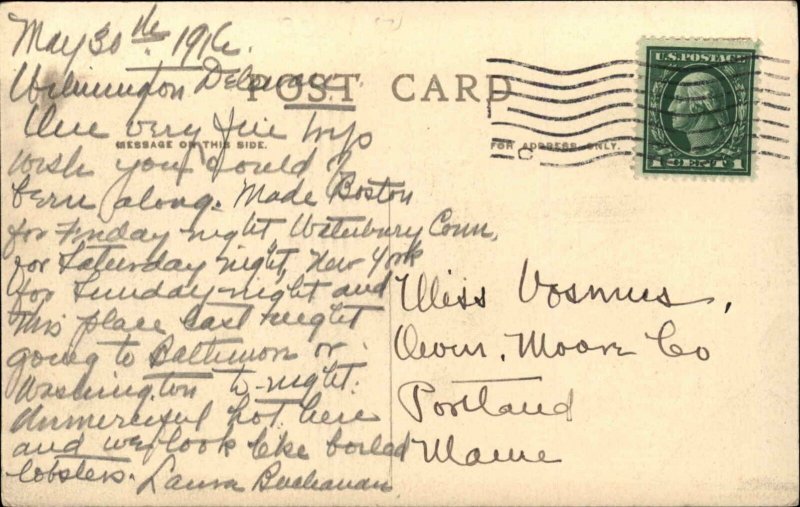 May 30th 1916.
Wilmington Delaware
POST CARD
One very fine trip
MESSAGE ON THIS SIDE.
FOR ADDRESS ONLY.
wish you could of
been along. Made Boston
for Friday night Waterbury Conn,
for Saturday night, New York
for Sunday night and
this place last night
going to Baltimore or
Washington to-night.
Unmerciful hot here
and we look like boiled
lobsters. Laura Buchanan
U.S. POSTAGE
1 CENT 1
Miss Vosmus,
Owen, Moore Co
Portland
Maine